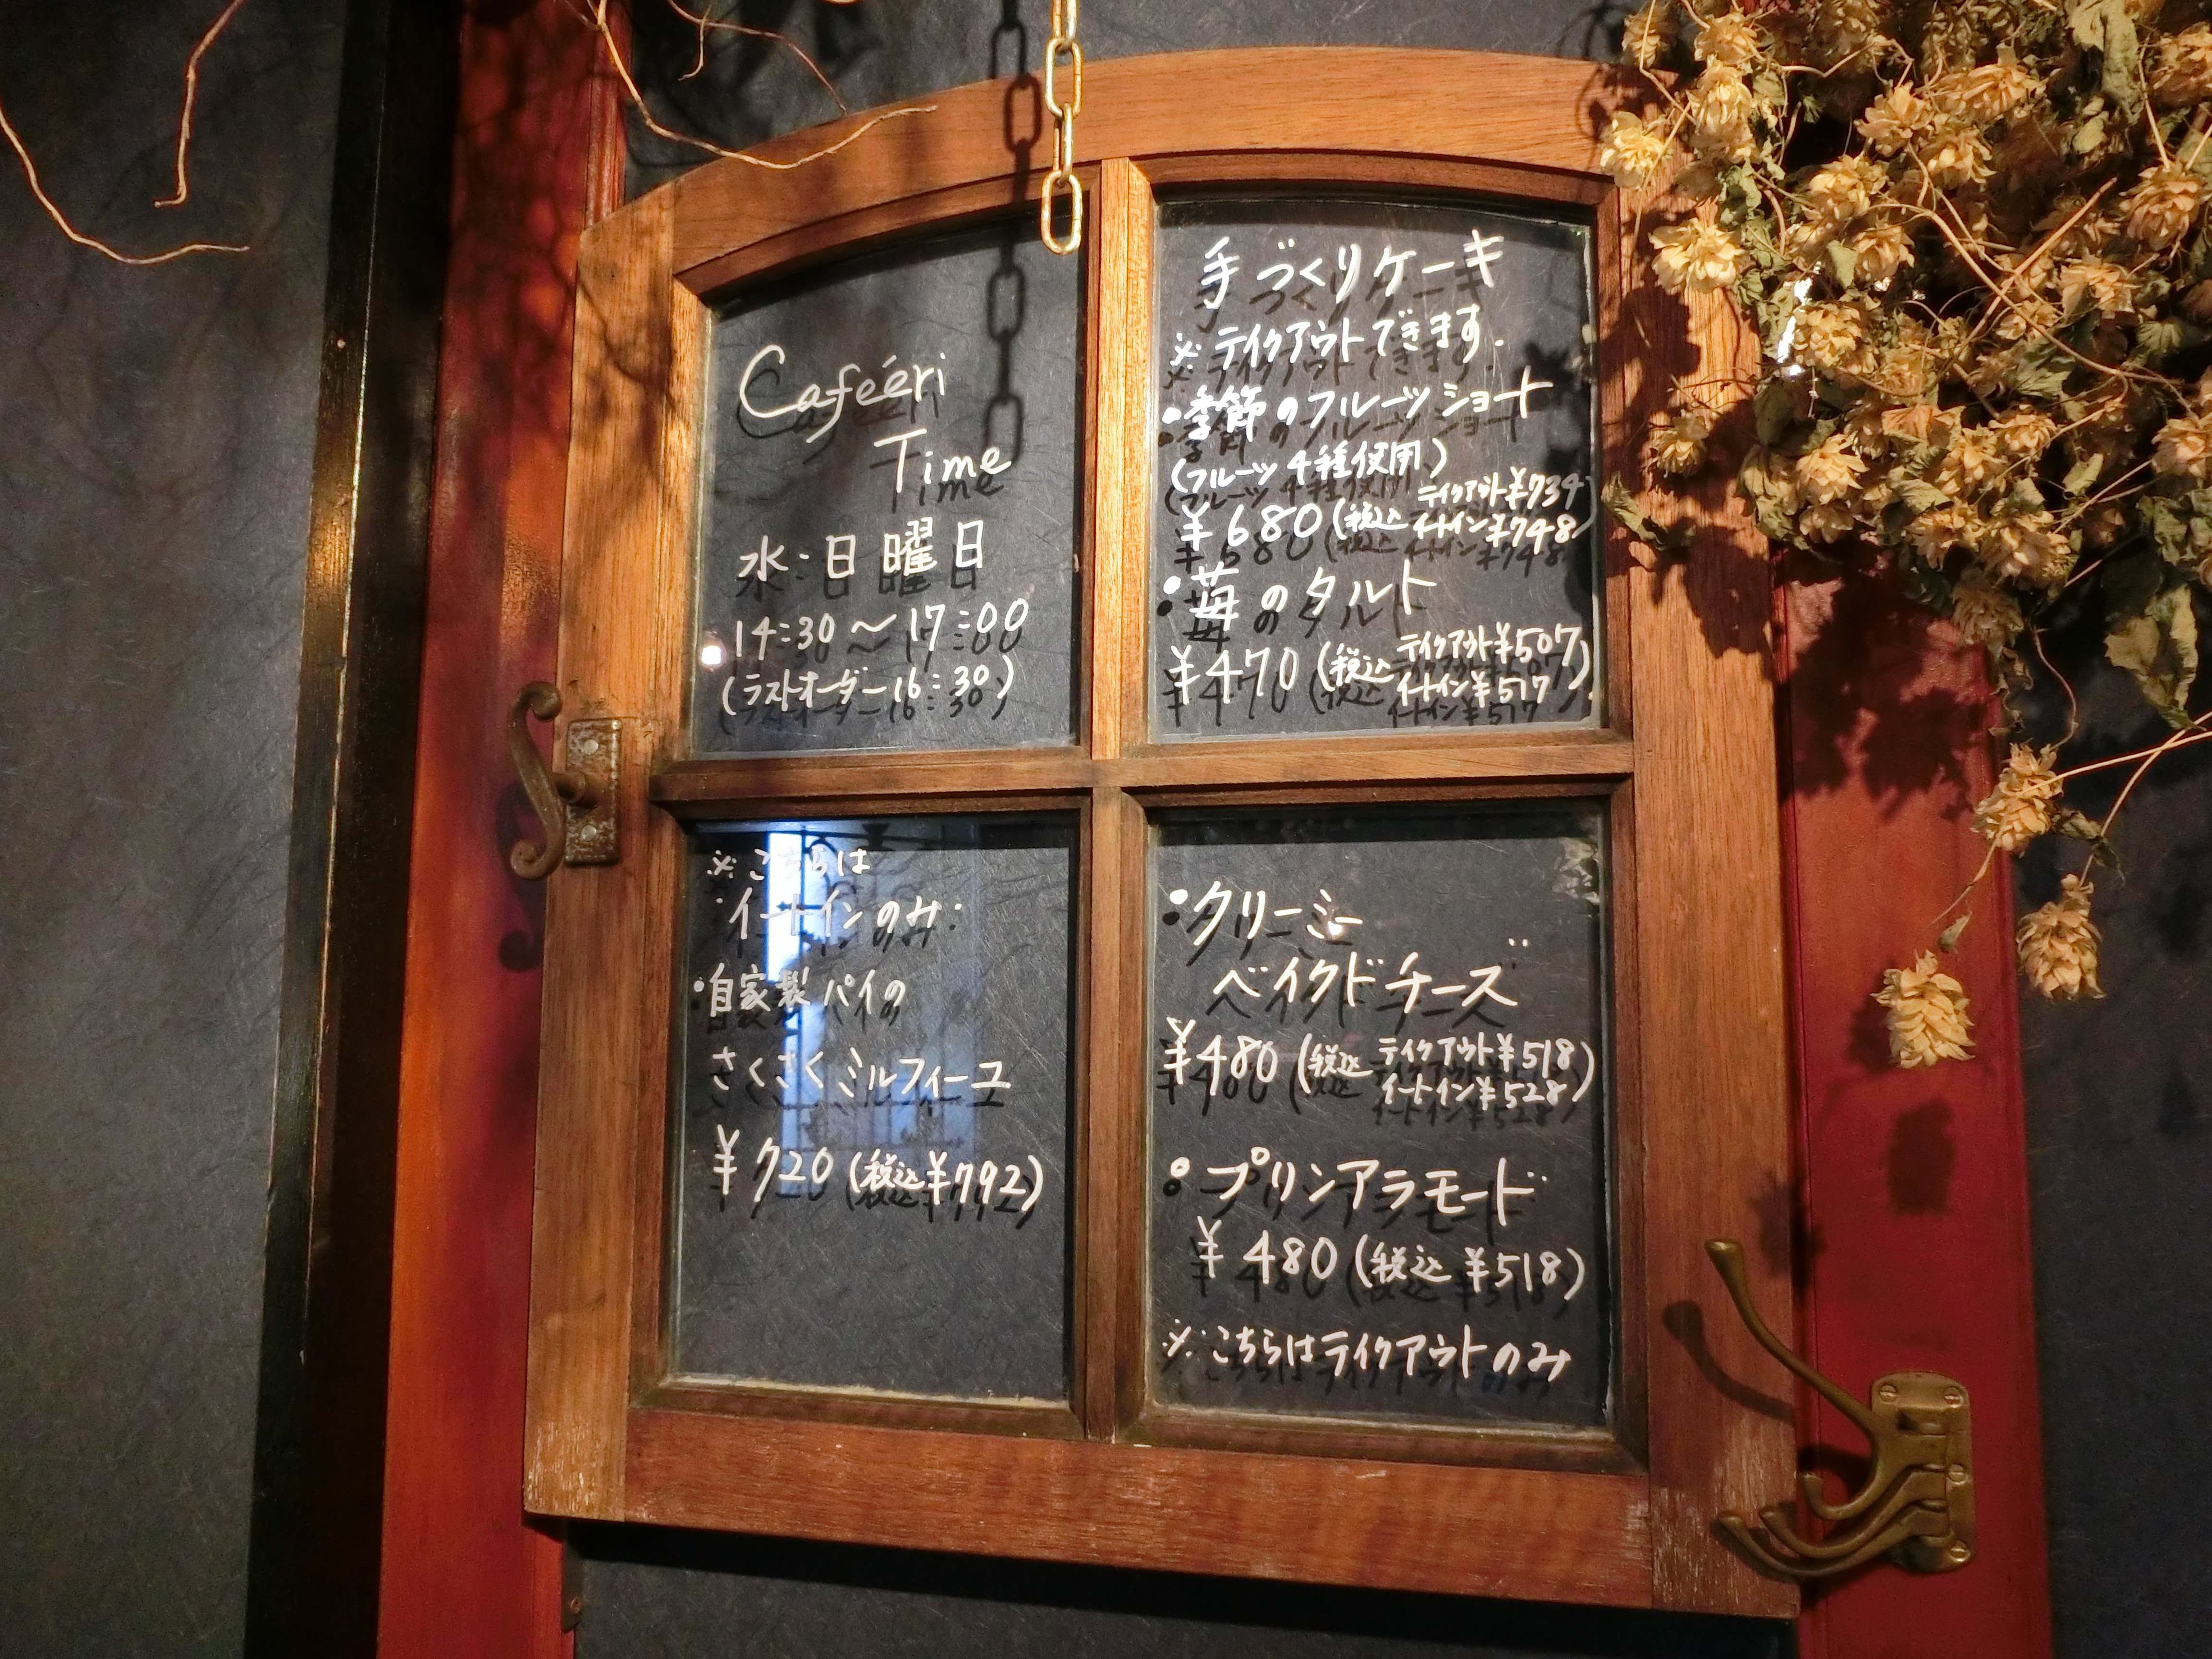 Cafeéri
Time
水・日曜日
14:30〜17:00
(ラストオーダー16:30)
手づくりケーキ
※テイクアウトできます.
・季節のフルーツショート
(フルーツ4種使用)
¥680(税込 テイクアウト¥734
イートイン¥748)
・苺のタルト
¥470(税込 テイクアウト¥507
イートイン¥517)
※こちらは
イートインのみ.
・自家製パイの
さくさくミルフィーユ
¥720(税込¥792)
・クリーミー
ベイクドチーズ
¥480(税込 テイクアウト¥518
イートイン¥528)
・プリンアラモード
¥480(税込¥518)
※こちらはテイクアウトのみ